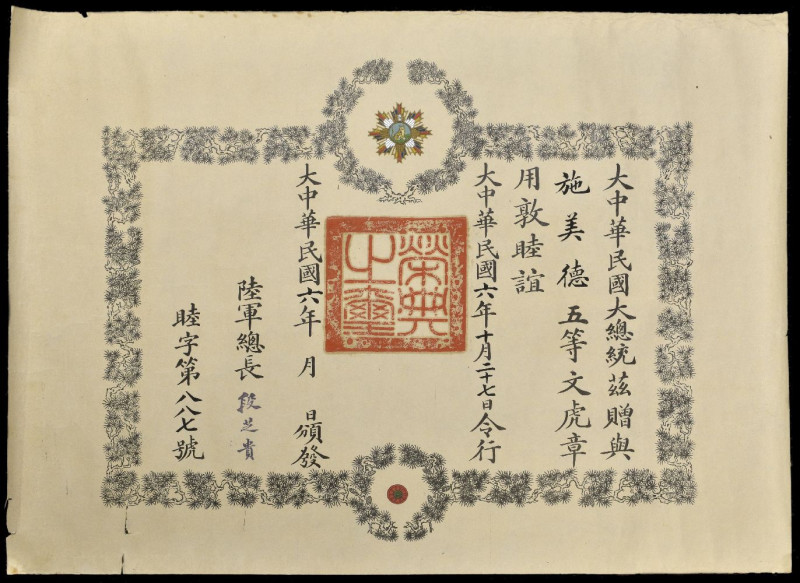 大中華民國大總統茲贈與
施美德五等文虎章
用敦睦誼
大中華民國六年十月二十七日令行
榮典之璽
大中華民國六年 月 日頒發
陸軍總長 段芝貴
睦字第八八七號